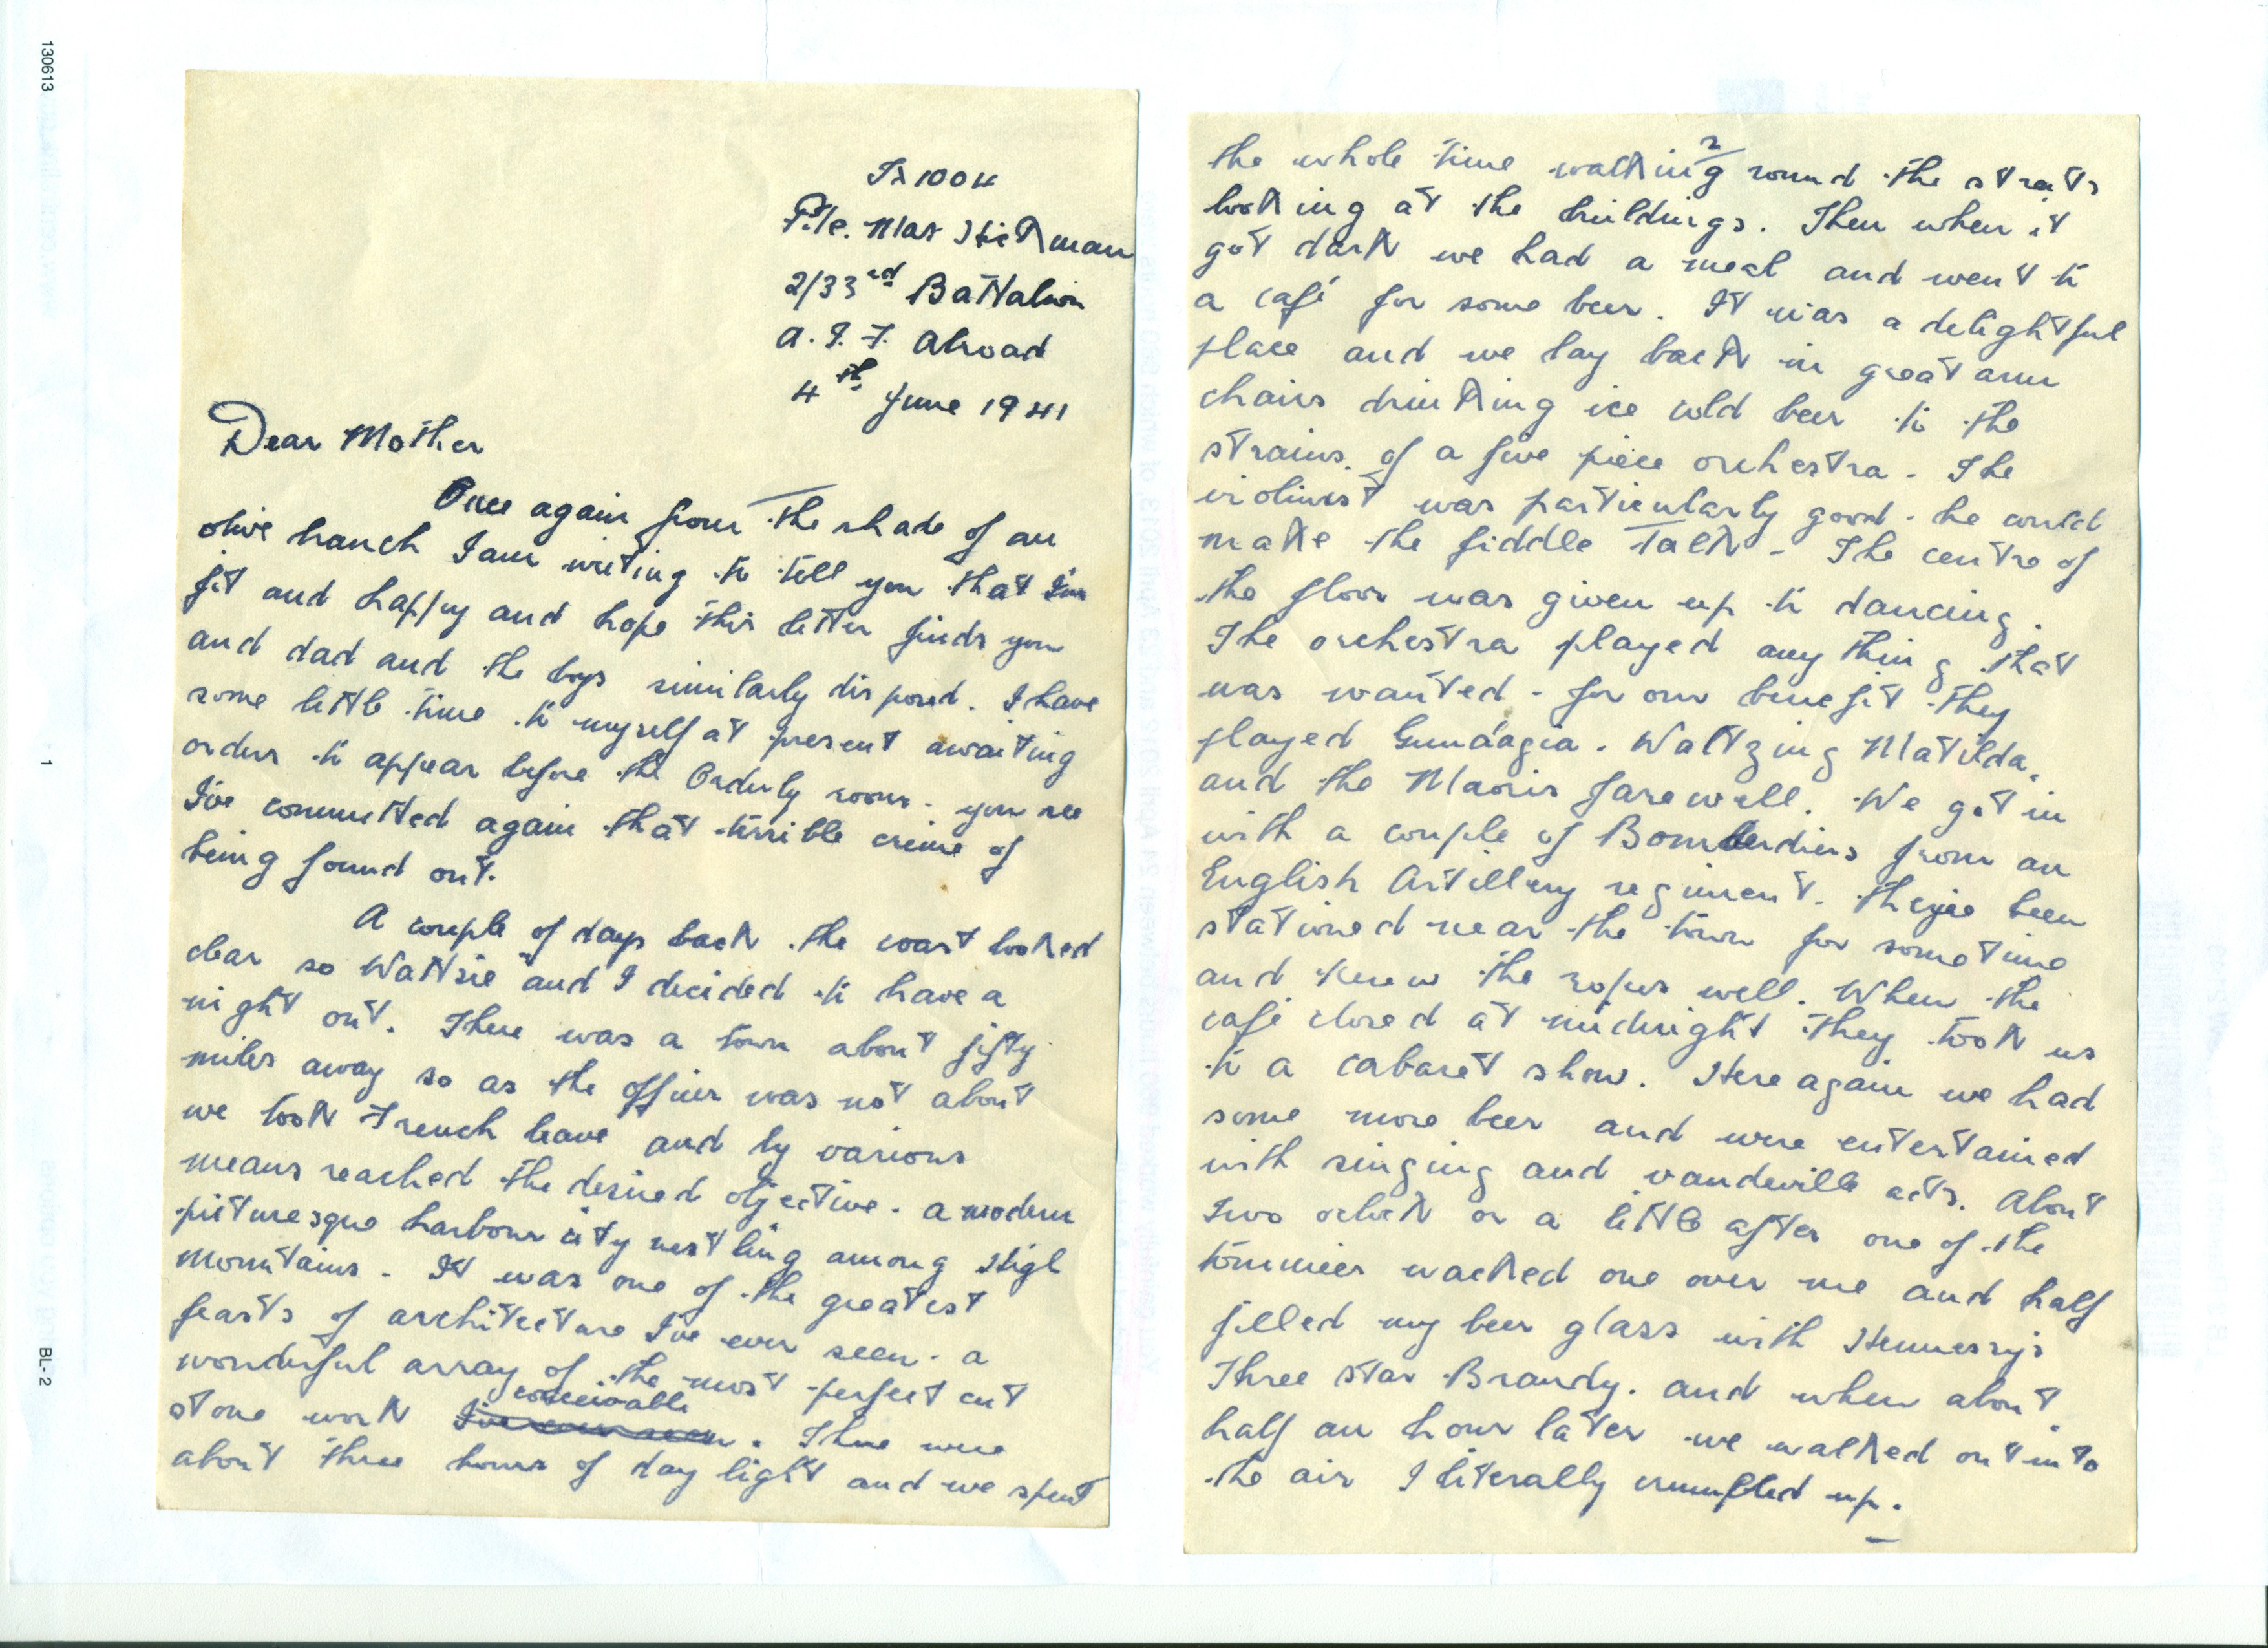 130613
1
BL-2
Tx 1004
Pte. Max Hickman
2/33rd Battalion
A.I.F. Abroad
4th June 1941
Dear Mother
Once again from the shade of an
olive branch I am writing to tell you that I'm
fit and happy and hope this letter finds you
and dad and the boys similarly disposed. I have
some little time to myself at present awaiting
orders to appear before the Orderly room - you see
I've committed again that terrible crime of
being found out.
A couple of days back the coast looked
clear so Wattsie and I decided to have a
night out. There was a town about fifty
miles away so as the officer was not about
we took French leave and by various
means reached the desired objective - a modern
picturesque harbour city nestling among High
Mountains - It was one of the greatest
feasts of architecture I've ever seen - a
wonderful array of the most perfect cut
conceivable
stone work I've ever seen. There were
about three hours of day light and we spent
2
the whole time walking round the streets
looking at the buildings. Then when it
got dark we had a meal and went to
a café for some beer. It was a delightful
place and we lay back in great arm
chairs drinking ice cold beer to the
strains of a five piece orchestra - The
violinist was particularly good - he could
make the fiddle talk - The centre of
the floor was given up to dancing.
The orchestra played any thing that
was wanted - for our benefit they
played Gundagia. Waltzing Matilda,
and the Maoris farewell. We got in
with a couple of Bomberdiers from an
English Artillery regiment - they've been
stationed near the town for sometime
and knew the ropes well. When the
café closed at midnight they took us
to a cabaret show. Here again we had
some more beer and were entertained
with singing and vaudeville acts. About
two oclock or a little after one of the
tommies wacked one over me and half
filled my beer glass with Hennessy's
Three star Brandy. and when about
half an hour later we walked out into
the air I literally crumpled up.